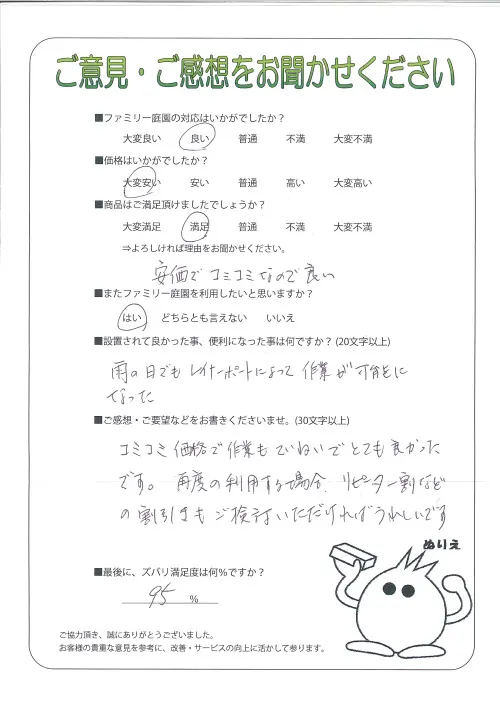 ご意見・ご感想をお聞かせください
■ファミリー庭園の対応はいかがでしたか？
大変良い 良い 普通 不満 大変不満
■価格はいかがでしたか？
大変安い 安い 普通 高い 大変高い
■商品はご満足頂けましたでしょうか？
大変満足 満足 普通 不満 大変不満
⇒よろしければ理由をお聞かせください。
安価でコミコミなので良い
■またファミリー庭園を利用したいと思いますか？
はい どちらとも言えない いいえ
■設置されて良かった事、便利になった事は何ですか？(20文字以上)
雨の日でもレイナーポートによって作業が可能に
なった
■ご感想・ご要望などをお書きくださいませ。(30文字以上)
コミコミ価格で作業もていねいでとても良かった
です。再度の利用する場合、リピーター割など
の割引きもご検討いただければうれしいです
ぬりえ
■最後に、ズバリ満足度は何％ですか？
95 %
ご協力頂き、誠にありがとうございました。
お客様の貴重な意見を参考に、改善・サービスの向上に活かして参ります。